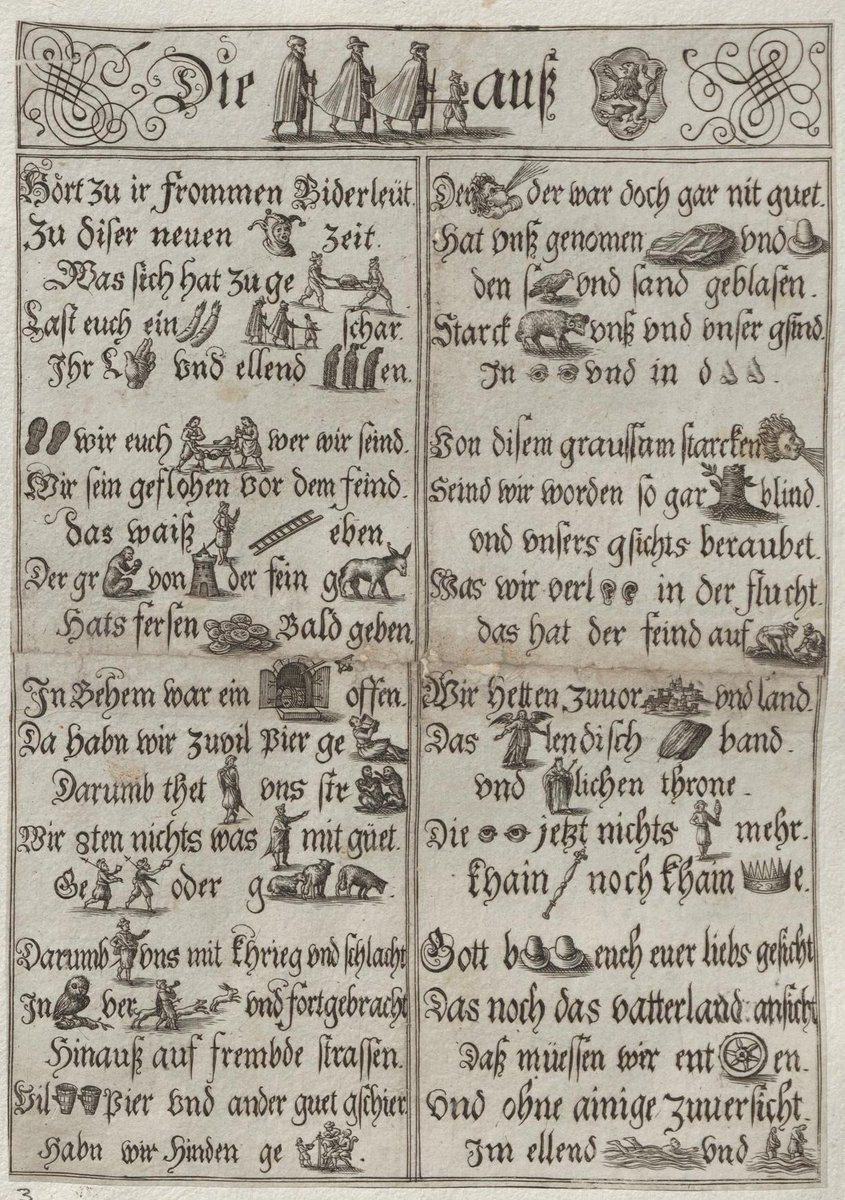 Die auß
Hört zu ir frommen Biderleüt.
Zu diser neuen zeit.
Was sich hat zu ge
Last euch ein schar.
Ihr L vnd ellend en.
wir euch wer wir seind.
Wir sein geflohen vor dem feind.
das waiß eben.
Der gr von der fein g
Hats fersen Bald geben.
In Behem war ein offen.
Da habn wir zuvil Pier ge
Darumb thet vns str
Wir 8ten nichts was mit güet.
Ge oder g .
Darumb vns mit khrieg vnd schlacht
In ver vnd fortgebracht
Hinauß auf frembde strassen.
Vil Pier vnd ander guet gschier
Habn wir Hinden ge .
Der der war doch gar nit guet.
Hat vnß genomen vnd
den s vnd sand geblasen.
Starck vnß vnd vnser gsind.
In vnd in d .
Von disem graussam starcken
Seind wir worden so gar blind.
vnd vnsers gsichts beraubet.
Was wir verl in der flucht.
das hat der feind auf
Wir Hetten zuuor vnd land.
Das lendisch band.
vnd lichen throne.
Die jetzt nichts mehr.
khain noch kham e.
Gott b euch euer liebs gesicht
Das noch das vatterland ansicht
Daß müessen wir ent en.
vnd ohne ainige zuuersicht.
Im ellend vnd
3